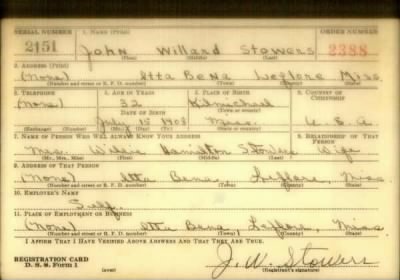 SERIAL NUMBER 1. NAME (Print) ORDER NUMBER
2151 John Willard Stowers 2388
(First) (Middle) (Last)
2. ADDRESS (Print)
(None) Itta Bena Leflore Miss
(Number and street or R. F. D. number) (Town) (County) (State)
3. TELEPHONE 4. AGE IN YEARS 5. PLACE OF BIRTH 6. COUNTRY OF CITIZENSHIP
(None) 32 Kilmichael
DATE OF BIRTH (Town or county)
July 15 1908 Miss. U. S. A
(Exchange) (Number) (Mo.) (Day) (Yr.) (State or country)
7. NAME OF PERSON WHO WILL ALWAYS KNOW YOUR ADDRESS 8. RELATIONSHIP OF THAT PERSON
Mrs. Hamilton Stowers Wife
(Mr., Mrs., Miss) (First) (Middle) (Last)
9. ADDRESS OF THAT PERSON
(None) Itta Bena, Leflore, Miss
(Number and street or R. F. D. number) (Town) (County) (State)
10. EMPLOYER'S NAME
Self.
11. PLACE OF EMPLOYMENT OR BUSINESS
(None) Itta Bena, Leflore, Miss
(Number and street or R. F. D. number) (Town) (County) (State)
I AFFIRM THAT I HAVE VERIFIED ABOVE ANSWERS AND THAT THEY ARE TRUE.
REGISTRATION CARD
D. S. S. Form 1 (over) J. W. Stowers
(Registrant's signature)